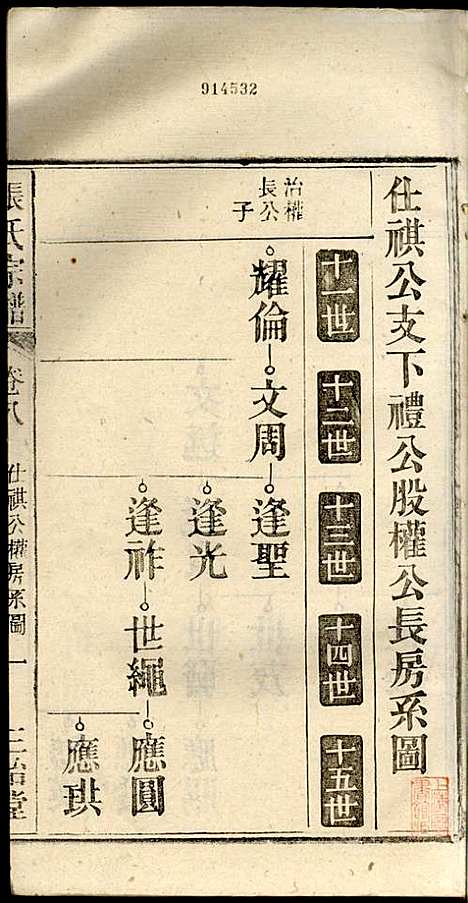 914532
仕祺公支下禮公股權公長房系圖
十一世
十二世
十三世
十四世
十五世
治權
長公
子
耀倫
文周
逢聖
逢光
逢祚
世繩
應圓
應珙
張氏宗譜
卷之八
仕祺公權房系圖
一